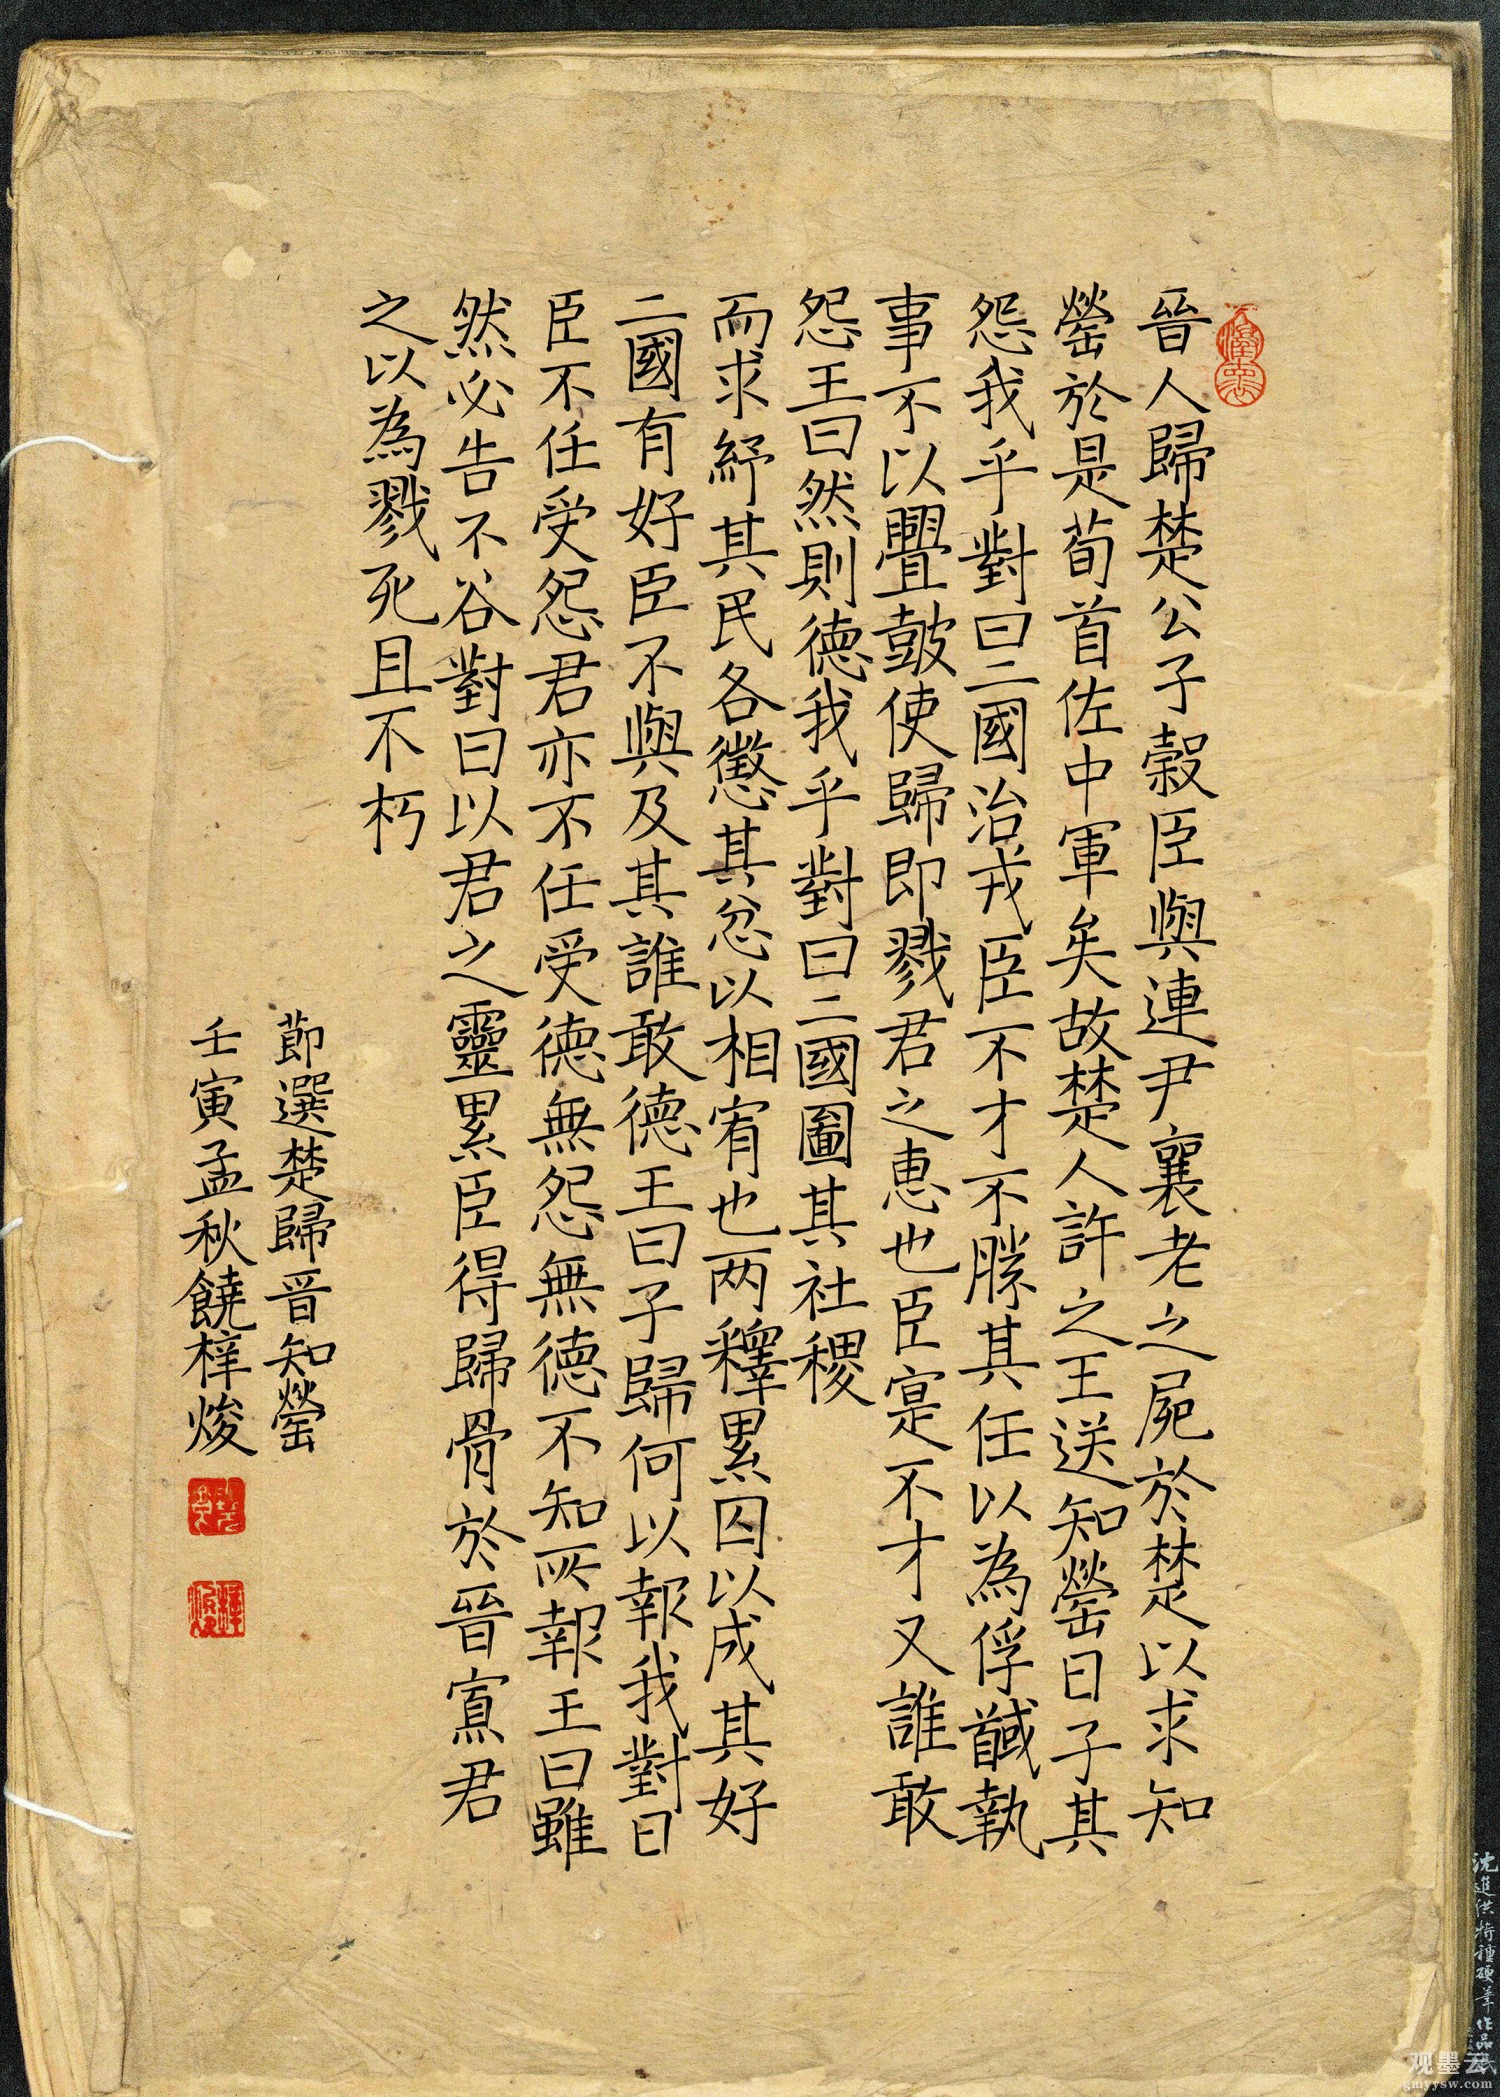 晉人歸楚公子穀臣與連尹襄老之屍於楚以求知
罃於是荀首佐中軍矣故楚人許之王送知罃曰子其
怨我乎對曰二國治戎臣不才不勝其任以為俘馘執
事不以釁鼓使歸即戮君之惠也臣寔不才又誰敢
怨王曰然則德我乎對曰二國圖其社稷
而求紓其民各懲其忿以相宥也两釋累囚以成其好
二國有好臣不與及其誰敢德王曰子歸何以報我對曰
臣不任受怨君亦不任受德無怨無德不知所報王曰雖
然必告不谷對曰以君之靈累臣得歸骨於晉寡君
之以為戮死且不朽
節選楚歸晉知罃
壬寅孟秋饒梓焌
沈進供特種硬筆作品紙
观墨云
gmyysw.com